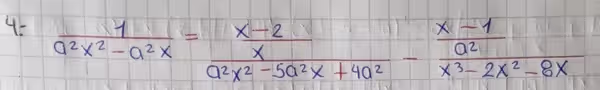 4- 1/(a²x² - a²x) = ((x-2)/x)/(a²x² - 5a²x + 4a²) - ((x-1)/a²)/(x³ - 2x² - 8x)